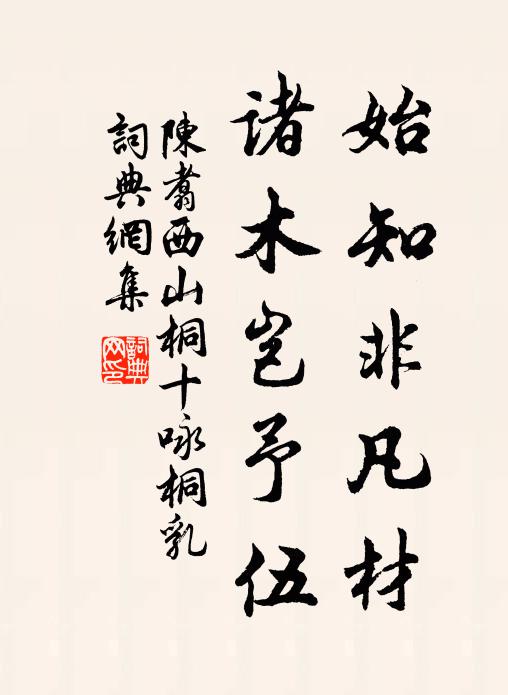 始知非凡材
诸木岂予伍
陳翥西山桐十咏桐乳
詞典網集
詞典网印